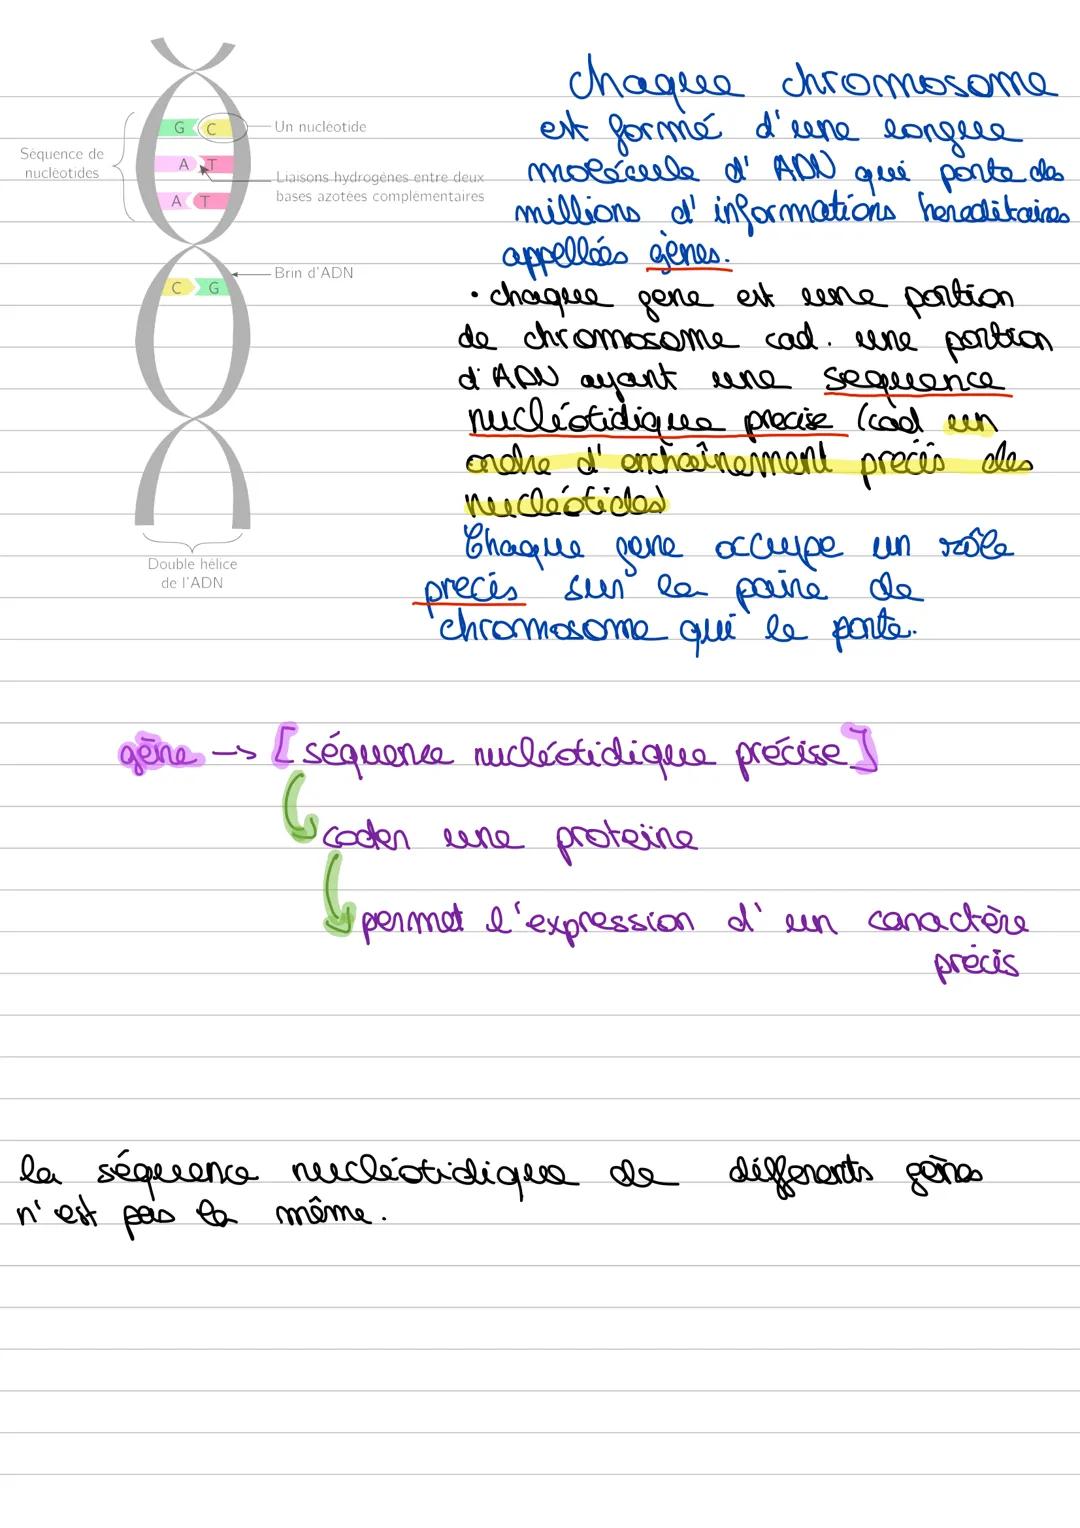 G C
A T
A T
C G
Séquence de
nucléotides
Un nucléotide
Liaisons hydrogènes entre deux
bases azotées complémentaires
Brin d'ADN
Double hélice
de l'ADN
chaque chromosome
est formé d'une longue
molécule d'ADN qui porte des
millions d'informations hereditaires
appellées gènes.
• chaque gene est une portion
de chromosome cad. une portion
d'ADN ayant une sequence
nucléotidique precise (cad un
ordre d'enchaînement precis des
nucléotides)
Chaque gene occupe un rôle
precis sur la paire de
chromosome qui le porte.
gène → [séquence nucléotidique précise]
coder une proteine
permet l'expression d'un caractère
précis
la séquence nucléotidique de différents gènes
n'est pas la même.